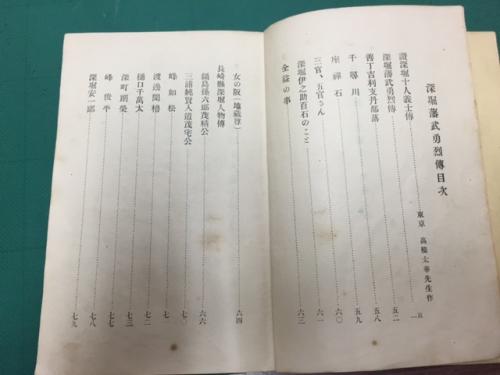 深堀藩武勇烈傳目次
東京 高橋太華先生作
讃深堀十人義士傳……一五
深堀藩武勇烈傳……五二
善丁吉利支丹部落……五八
千尋川……五九
座禪石……六〇
三官、五官さん……六一
深堀伊之助百石のこと
全益の事……六三
女の阪(地蔵尊)……六四
長崎縣深堀人物傳
鍋島孫六郎茂精公……六六
三浦純賢入道茂宅公……七〇
峰如松……七
渡邊閑櫓……七二
樋口千萬太
深町朗榮……七三
峰俊平……七七
深堀安一郎……七八
七九